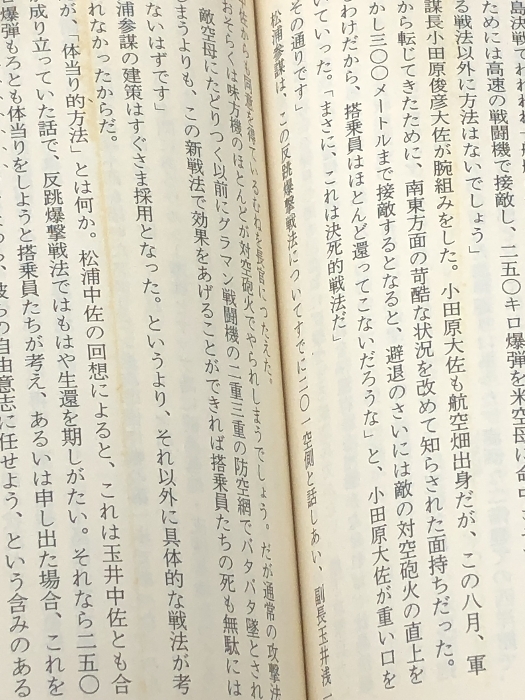 島決戦でわれわれ
ためには高速の戦闘機で接敵し、二五〇キロ爆弾を米空母に命
る戦法以外に方法はないでしょう」
謀長小田原俊彦大佐が腕組みをした。小田原大佐も航空畑出身だが、この八月、軍
から転じてきたために、南東方面の苛酷な状況を改めて知らされた面持ちだった。
かし三〇〇メートルまで接敵するとなると、避退のさいには敵の対空砲火の直上を
わけだから、搭乗員はほとんど還ってこないだろうな」と、小田原大佐が重い口を
いていった。「まさに、これは決死的戦法だ」
その通りです」
松浦参謀は、この反跳爆撃戦法についてすでに二〇一空側と話しあい、副長玉井浅一
佐からも同意を得ているむねを長官につたえた。
おそらくは味方機のほとんどが対空砲火でやられしまうでしょう。だが通常の攻撃法
敵空母にたどりつく以前にグラマン戦闘機の二重三重の防空網でバタバタ墜とされ
しまうよりも、この新戦法で効果をあげることができれば搭乗員たちの死も無駄には
ないはずです」
浦参謀の建策はすぐさま採用となった。というより、それ以外に具体的な戦法が考
れなかったからだ。
が、「体当り的方法」とは何か。松浦中佐の回想によると、これは玉井中佐とも合
が成り立っていた話で、反跳爆撃戦法ではもはや生還を期しがたい。それなら二五〇
爆弾もろとも体当りをしようと搭乗員たちが考え、あるいは申し出た場合、これを
彼らの自由意志に任せよう、という含みのある